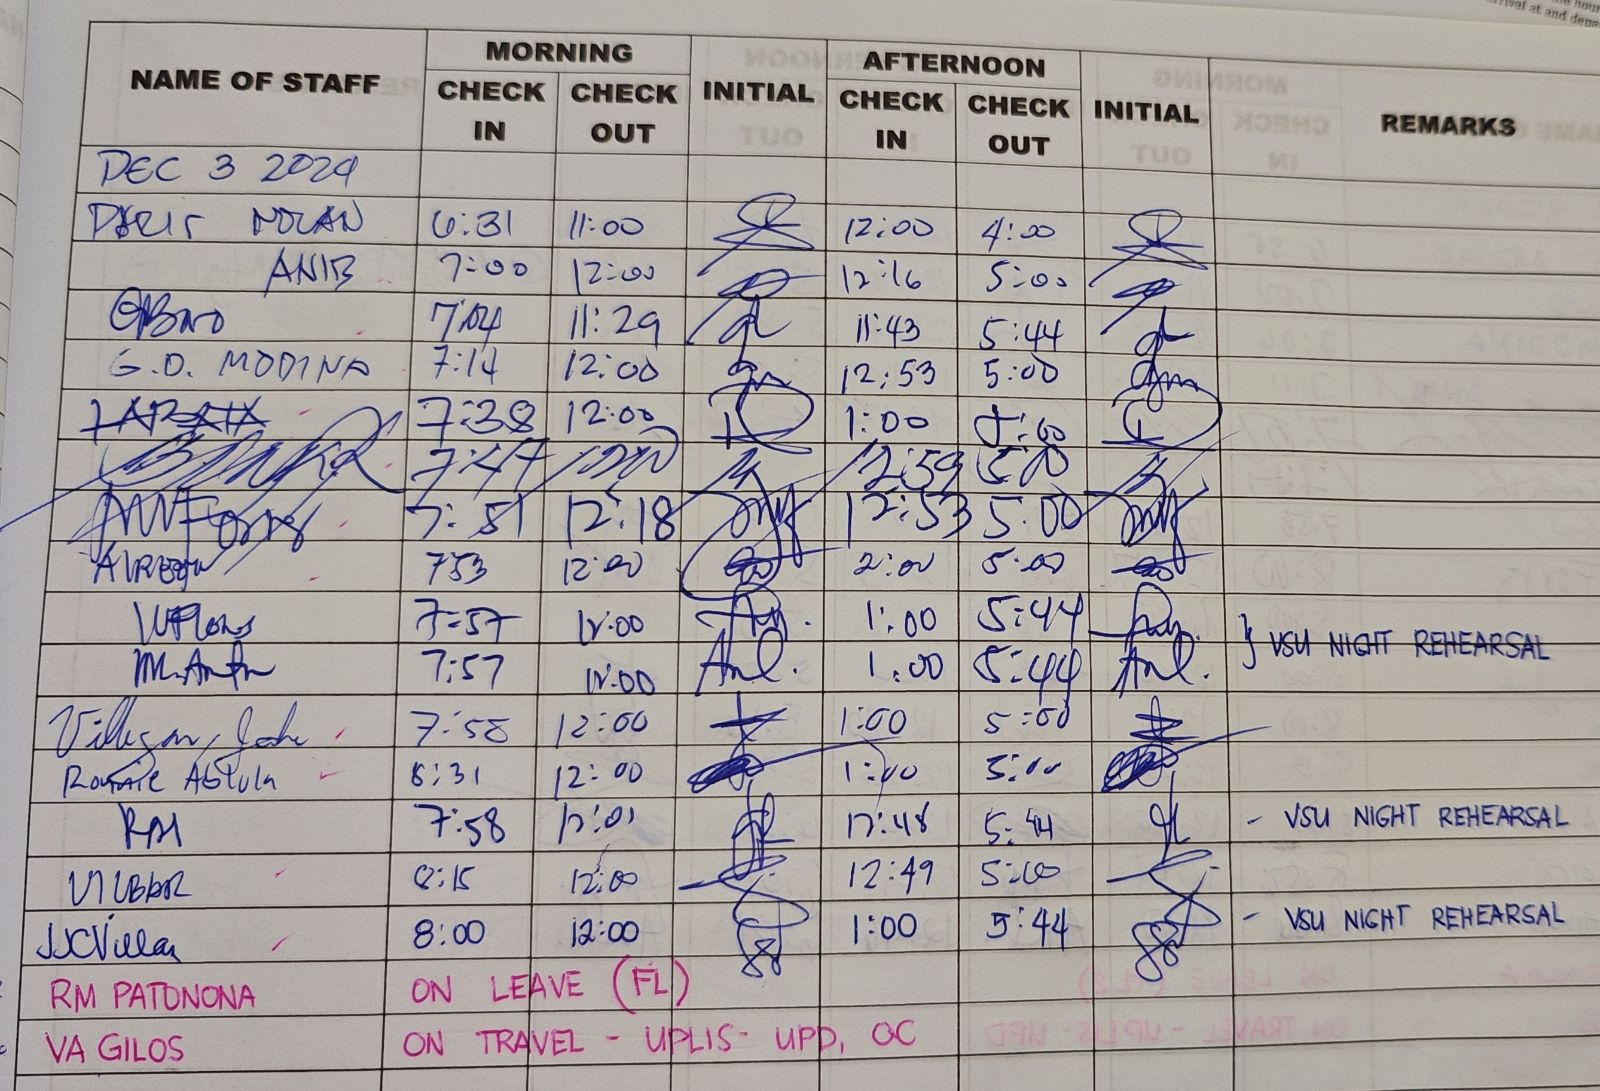 rrival at and depa
NAME OF STAFF MORNING AFTERNOON REMARKS
CHECK IN CHECK OUT INITIAL CHECK IN CHECK OUT INITIAL
DEC 3 2024
NOLAN 6:31 11:00 12:00 4:00
ANIB 7:00 12:00 12:16 5:00
7:04 11:29 11:43 5:44
G.D. MODINA 7:14 12:00 12:53 5:00
7:38 12:00 1:00 5:00
7:47 12:59 5:00
7:51 12:18 12:53 5:00
753 12:00 2:00 5:00
7:57 12:00 1:00 5:44 } VSU NIGHT REHEARSAL
7:57 12:00 Anl. 1:00 5:44 Anl.
Villegas, Jake 7:58 12:00 1:00 5:00
Abtula 8:31 12:00 1:00 5:00
RM 7:58 12:01 12:48 5:44 - VSU NIGHT REHEARSAL
8:15 12:00 12:49 5:00
JJCVillar 8:00 12:00 1:00 5:44 - VSU NIGHT REHEARSAL
RM PATONONA ON LEAVE (FL)
VA GILOS ON TRAVEL - UPLIS - UPD, QC